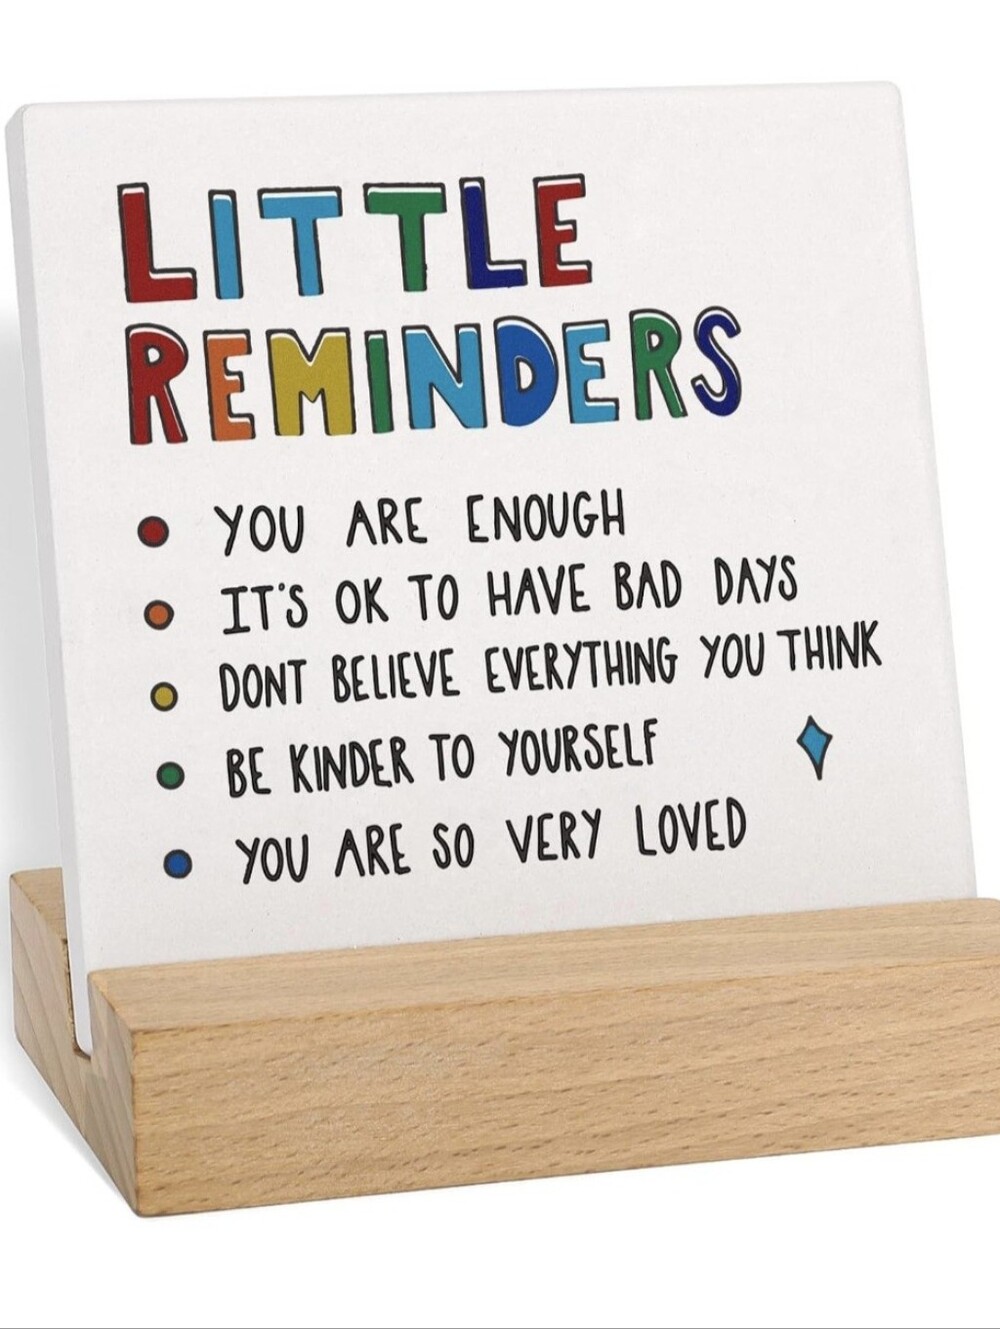 LITTLE
REMINDERS
YOU ARE ENOUGH
IT'S OK TO HAVE BAD DAYS
DONT BELIEVE EVERYTHING YOU THINK
BE KINDER TO YOURSELF
YOU ARE SO VERY LOVED